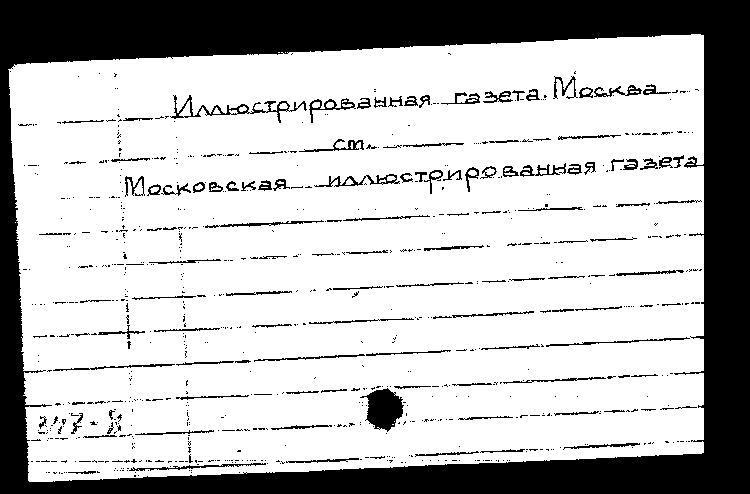 Иллюстрированная газета. Москва
ст.
Московская иллюстрированная газета